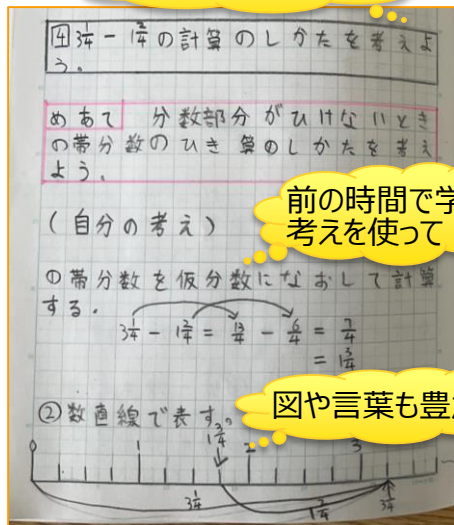 4 3 1/4 - 1 2/4 の計算のしかたを考えよ
う。
めあて 分数部分がひけないとき
の帯分数のひき算のしかたを考え
よう。
(自分の考え)
前の時間で学
考えを使って
①帯分数を仮分数になおして計算
する。
3 1/4 - 1 2/4 = 13/4 - 6/4 = 7/4
= 1 3/4
図や言葉も豊
②数直線で表す。
1 3/4
0 1 2 3
3 1/4 1 2/4 3 1/4